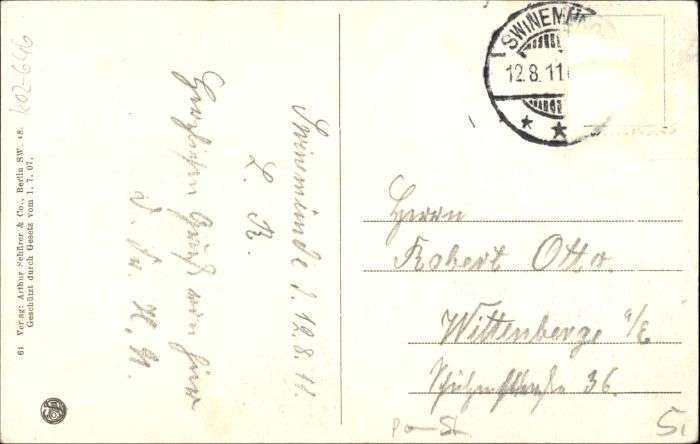 SWINEMÜ
12.8.11
Swinemünde d. 12.8.11.
L. R.
Herzlichen Gruß von hier
Herrn
Robert Otto.
Wittenberge a/E
Schützenstraße 36.
61 Verlag: Arthur Schürer & Co., Berlin SW. 48.
Geschützt durch Gesetz vom 1. 7. 07.
402-646